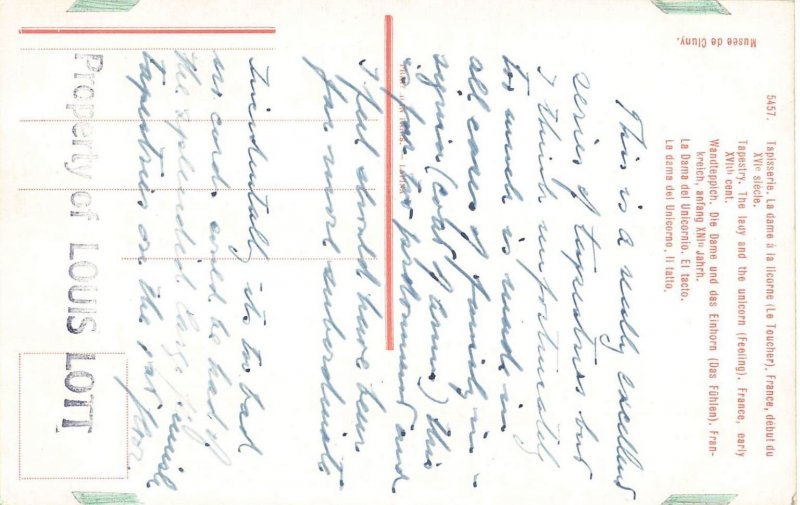 Musee de Cluny.
5457. Tapisserie. La dame à la licorne (Le Toucher). France, début du
XVIe siècle.
Tapestry. The lady and the unicorn (Feeling). France, early
XVIth cent.
Wandteppich. Die Dame und das Einhorn (Das Fühlen). Fran-
kreich, anfang XVIte Jahrh.
La Dama del Unicornio. El tacto.
La dama del Unicorno. Il tatto.
This is a really excellent
series of tapestries but
I think unfortunately
too much is made in
all cases of family in-
signia (coat of arms) this
is far too prodominant and
I feel should have been
far more subordinate
Incidentally its too bad
no cards could be had of
the splendid large
tapestries on the 1st floor
Property of LOUIS LOTT